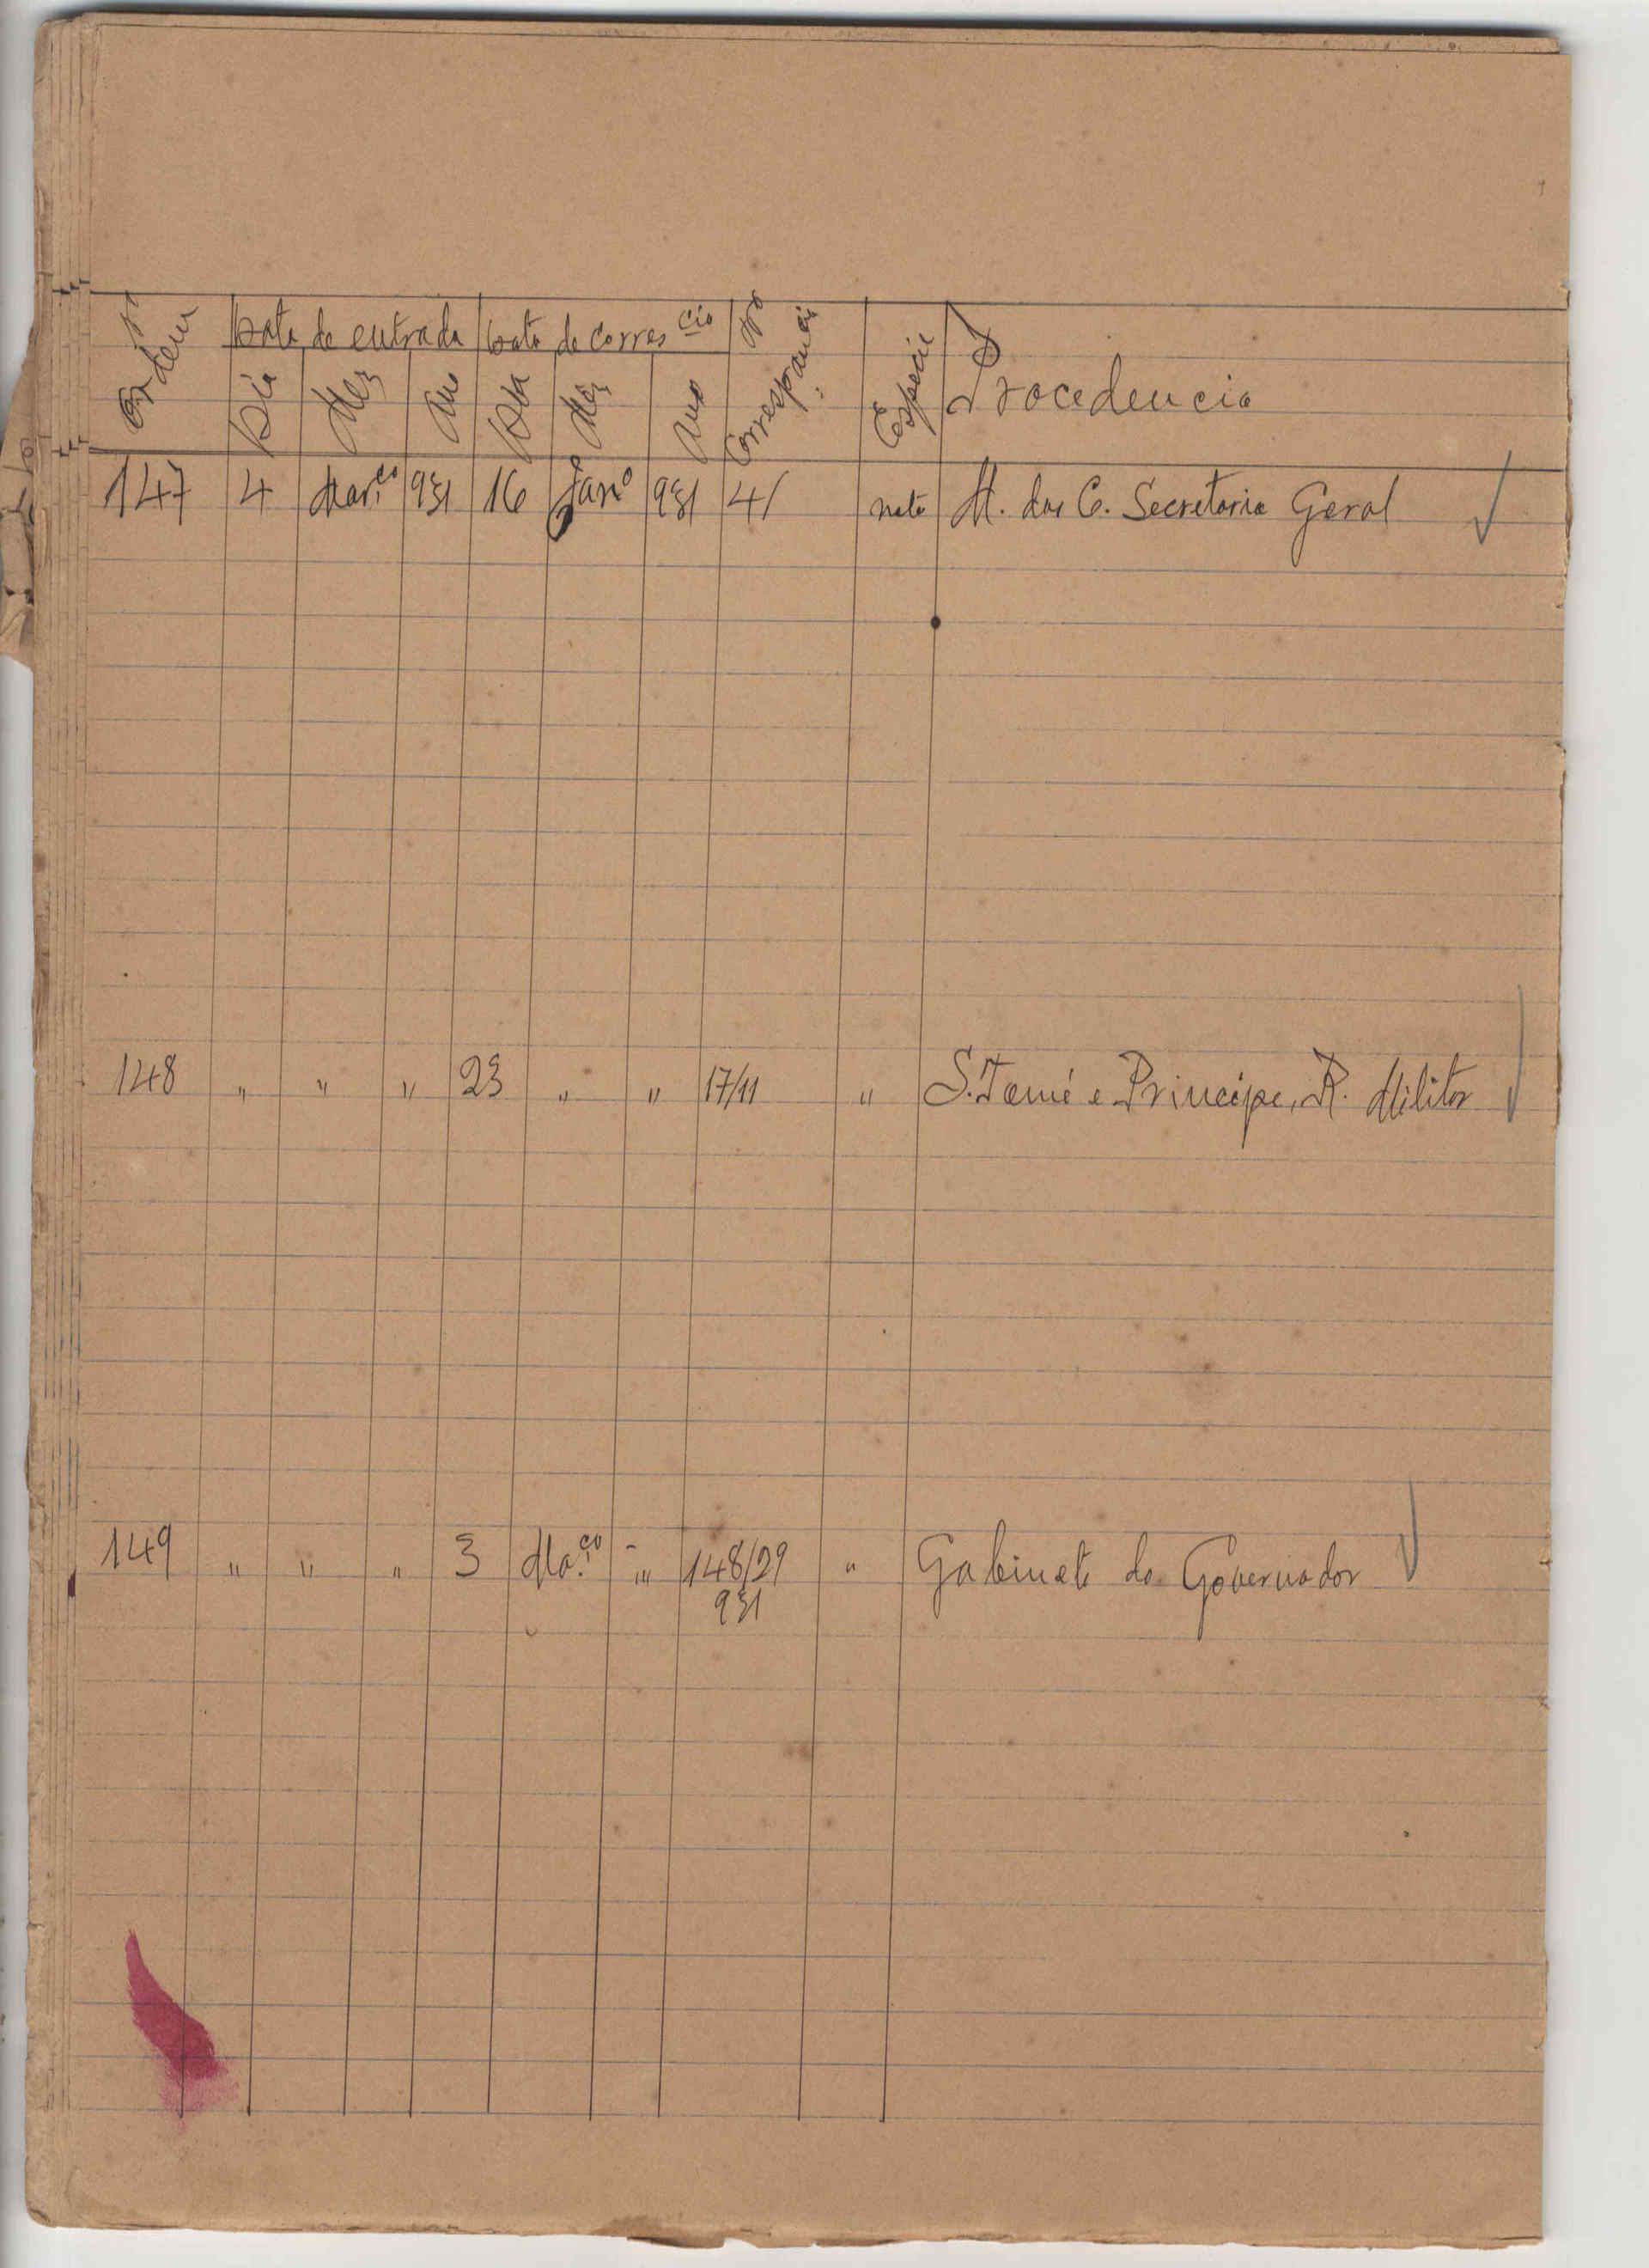 Nº Ordem Data de entrada Data de corres cia Nº Correspancia Especie Procedencia
Dia Mez Ano Dia Mez Ano
147 4 Mar.ço 931 16 Janº 931 41 nota M. das C. Secretaria Geral
148 " " " 23 " " 17/11 " S. Tomé e Principe, R. Militar
149 " " " 3 Ma.ço " 148/29 " Gabinete do Governador
931